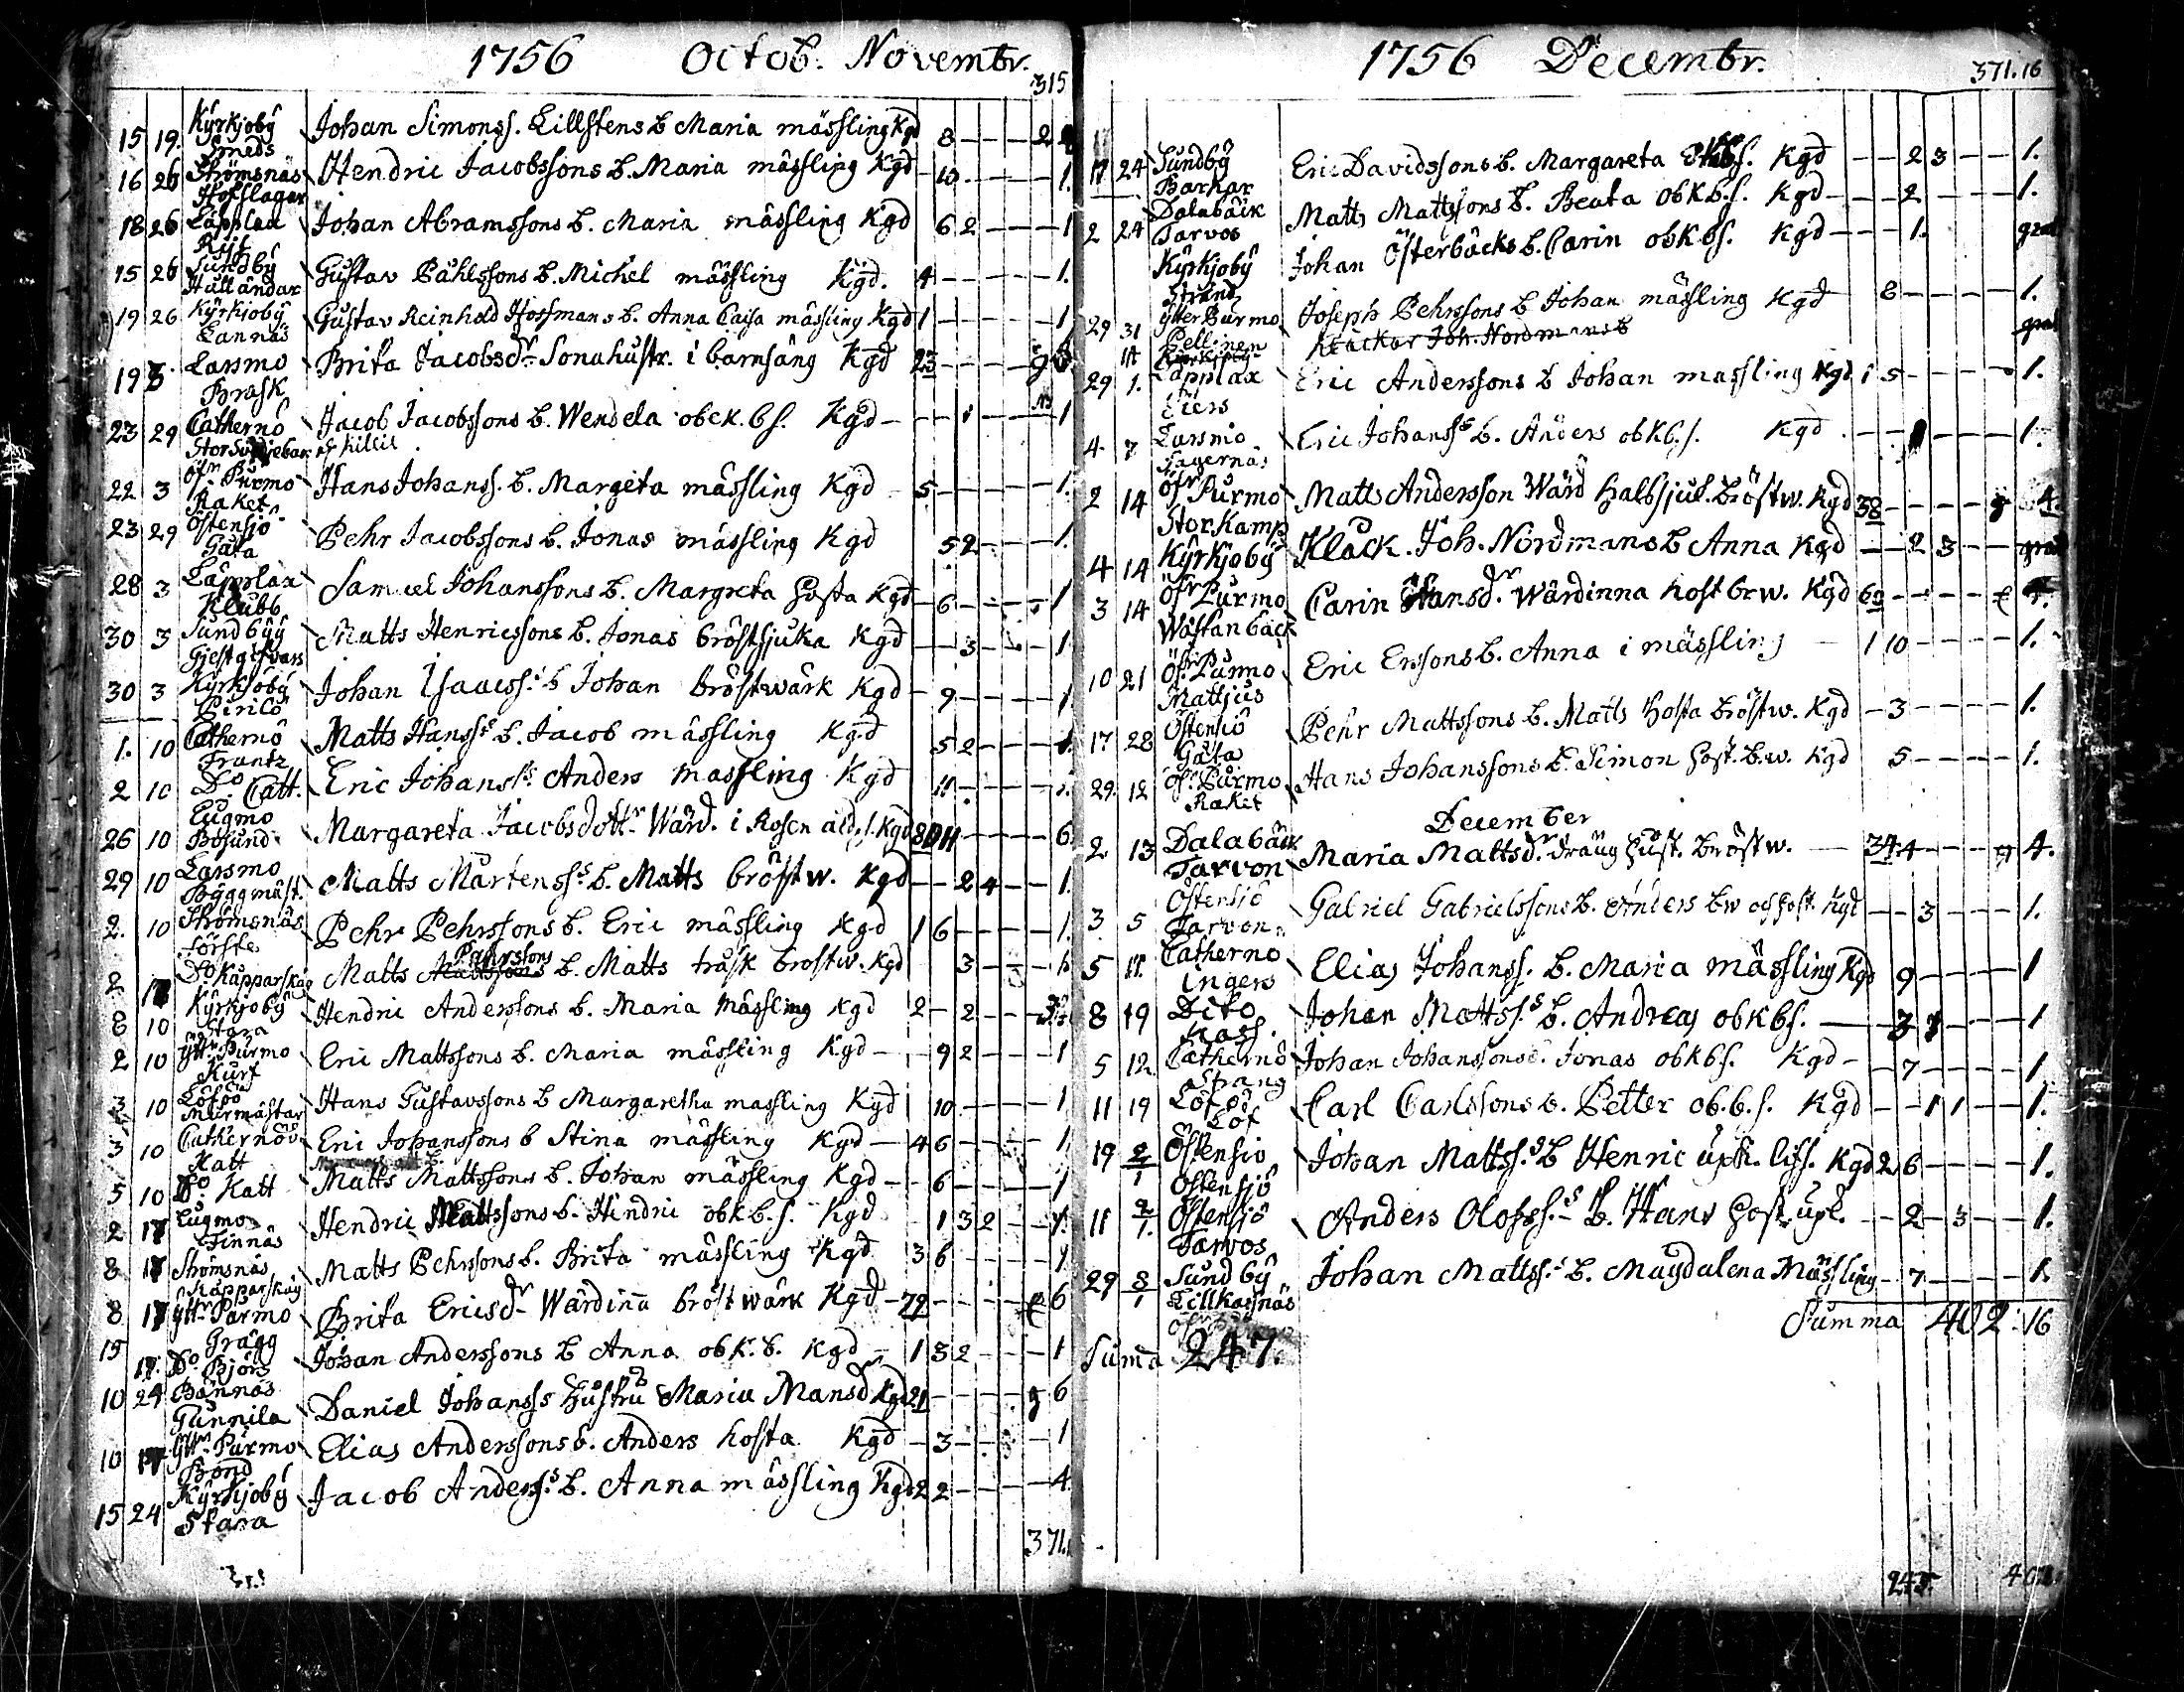 1756 Octob. Novembr.
315
15 19. Kyrkjoby Smeds Johan Simonss. Lillstens b Maria mässling Kgd 8 — — — 2
16 26 Strömsnäs Hofslagar Hendric Jacobssons b. Maria mässling Kgd 10 — — — 1.
18 26 LappLax Johan Abramssons b. Maria mässling Kgd 6 2 — — — 1
15 26 Sundby Hällandar Gustav Påhlssons b. Michel mässling Kgd. 4 — — — — 1.
19 26 Kyrkioby Lannäs Gustav Reinhold Hofmans b. Anna Caisa mässling Kgd 1 — — — — 1
19 3 Larsmo Brask Brita Jacobsdr Sonahustr. i barnsäng Kgd 23 — — — —
23 29 Cathernö Jacob Jacobssons b. Wendela obek. bs. Kgd — — 1 — — 1
22 3 Öfr Purmo Raket Hans Johanss. b. Margeta mässling Kgd — 5 — — — — 1.
23 29 Östensiö Gäta Pehr Jacobssons b. Jonas mässling Kgd 5 2 — — — 1.
28 3 Lappläx Klubb Samuel Johanssons b. Margreta hosta Kgd — 6 — — — 1
30 3 Sundbÿ Gjestgifvars Matts Henricssons b. Jonas bröstsjuka Kgd — 3 — — — 1
30 3 Kyrkjoby Pirilö Johan Isaacss. b Johan bröstwärk Kgd — 9 — — — 1
1. 10 Cathernö Frantz Matts Hanss. b. Jacob mässling Kgd 5 2 — — — 1
2 10 Do Catt. Eric Johanss. Anders massling Kgd 11 — — — — 1.
26 10 Eugmo Bosund Margareta Jacobsdottr Wärd. i Rosen äld.s. Kgd 80 11 — — — — 6
29 10 Larsmo Byggmäst. Matts Mårtenss. b. Matts bröstw. Kgd — — 2 4 — — 1.
2. 10 Strömsnäs Förste Pehr Pehrssons b. Eric mässling Kgd 1 6 — — — — 1.
Pährssons
2 17 Do Kupparskög Matts Mattssons b. Matts träsk bröstw. Kgd 3 — — — 1.
8 10 Kyrkjoby Stara Hendric Anderssons b. Maria mässling Kgd 2 — 2 — — —
2 10 Ytt. Purmo Kurf Eric Mattssons b. Maria mässling Kgd — — 9 2 — — — 1
3 10 Löföö Murmästar Hans Gustavssons b Margaretha massling Kgd 10 — — — 1
3 10 Cathernöö Katt Eric Johanssons b Stina mässling Kgd — 4 6 — — — — 1
5 10 Do. Katt Matts Mattssons b. Johan mässling Kgd — — 6 — — — 1
2 17 Eugmo Finnäs Hendric Mattssons b. Hindric obk b.s. Kgd 1 3 2 — — 1.
8 17 Strömsnäs Kapparskog Matts Pehrssons b. Brita mässling Kgd 3 6 — — — — 1
8 17 Ytt. Purmo Grägg Brita Ericsdr Wärdina bröstwärk Kgd — 72 — — — — 6
15 17. Do. Björs Johan Anderssons b Anna obk. b. Kgd — 1 3 2 — — — 1
10 24 Bännäs Gunnila Daniel Johanss hustru Maria Mansd Kgd 21 — — — — g 6
10 17 Ytt. Purmo Bond Elias Anderssons b. Anders hosta Kgd — 3 — — — — 1
15 24 Kyrkjoby Stara Jacob Anderss. b. Anna mässling Kgd 2 2 — — — — 4
371.
1756 Decembr.
371.16
17 24 Sundby Barkar Eric Davidssons b. Margareta Kgd — — 2 3 — — 1.
2 24 Dalabäck Jarvos Matts Mattssons b. Beata obkb.s. Kgd — — — 2 — — — 1.
Kyrkjoby Strand Johan Österbäcks b. Carin obkbs. Kgd — — — 1. grat
29 31 Ytter Purmo Pellinen Joseph Pehrssons b Johan mässling Kgd 8 — — — — 1.
Klåckar Joh. Nordmans b grat
29 1. Lapplax Eiers Eric Anderssons b Johan massling Kgd 1 5 — — — — 1.
4. 7 Larsmo Fagernäs Eric Johanss b. Anders obkb.s. Kgd — — — — — 1.
2 14 Öfr Purmo Stor Kamp Matts Andersson Wärd halbsjuk bröstw. Kgd 38 — — — — g 4.
4 14 Kyrkjoby Klåck. Joh. Nordmans b Anna Kgd — — 2 3 — — grat
3 14 Öfr Purmo Wästanbäck Carin Hansdr. Wärdinna host brw. Kgd 60 — — — —
10 21 Öfr. Purmo Mattjus Eric Erssons b. Anna i mässling — 1 10 — — — — 1.
17 28 Östensiö Gäta Pehr Mattssons b. Matts hosta bröstw. Kgd — 3 — — — — 1.
29. 12 Öfr. Purmo Raket Hans Johanssons b. Simon host. b.w. Kgd 5 — — — — 1.
December
2 13 Dalabäck Jarvon Maria Mattsdr. dräng hust. bröstw. — 34 4 — — — g 4.
3 5 Östensiö Jarvon. Gabriel Gabrielssons b. Anders bw och host. Kgd — — 3 — — — 1.
5 11. Catherno Ingers Elias Johanss. b. Maria mässling Kgd 9 — — — — 1
8 19 Dito Kass. Johan Mattss. b. Andreas obkbs. — — 3 — — — 1
5 12 Cathernö Strang Johan Johanssons b. Jonas obkbs. Kgd — — 7 — — — — 1
11 19 Löfö Löf Carl Carlssons b. Petter ob.b.s. Kgd — — 1 1 — — 1.
19 2/1 Östensiö Östensjö Johan Mattss. b Henric Kgd 2 6 — — — — 1.
11 2/1. Östensjö Jarvos Anders Olofss. b. Hans host. — — 2 — 3 — — 1.
29 8/1 Sundby Lillkasnäs Johan Mattss. b. Magdalena Mässling — 7 — — — — 1.
Summa 402:16
Suma 247.
245. 402.